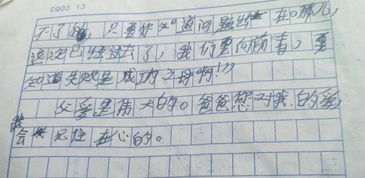 C003 13
不了的，只要你知道问题出在哪儿，
这次已经过去了，我们要向前看，要
知道失败是成功之母啊！”
父爱是伟大的。爸爸您对我的爱，
我会记住在心的。